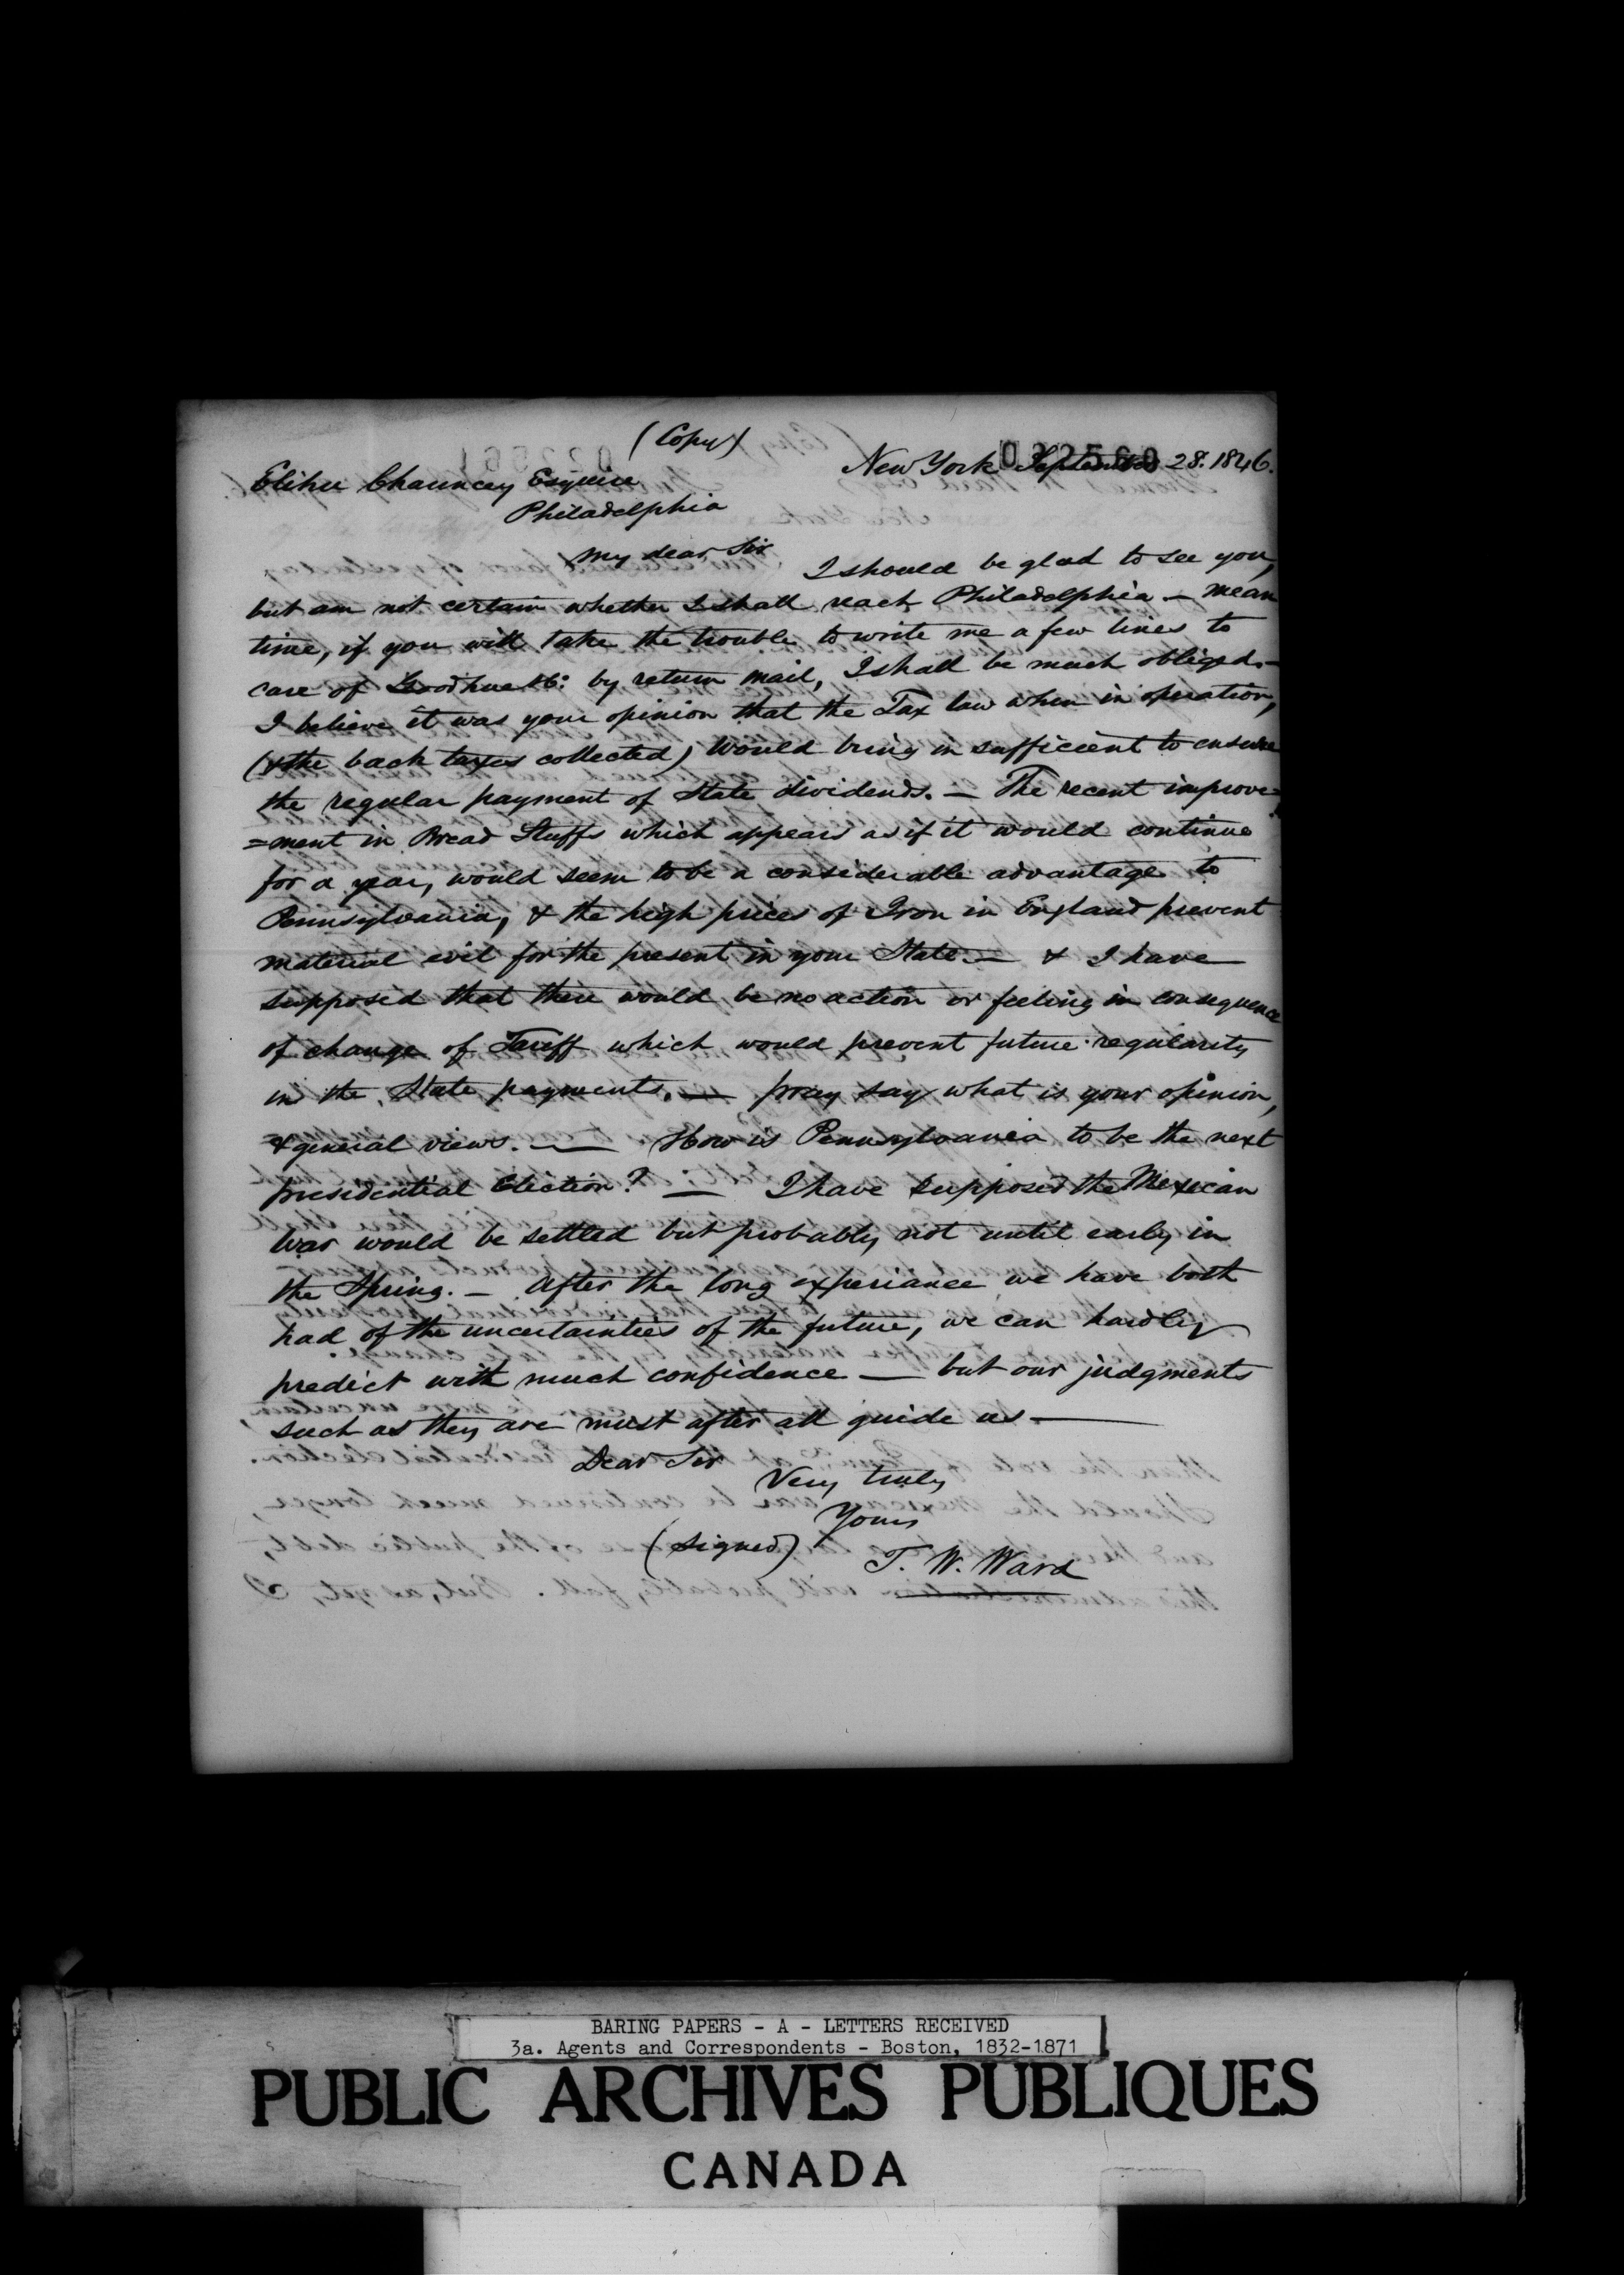 (Copy)
022560
New York September 28. 1846.
Elihu Chauncey Esquire
Philadelphia
My dear Sir
I should be glad to see you,
but am not certain whether I shall reach Philadelphia — mean
time, if you will take the trouble to write me a few lines to
care of Goodhue & Co: by return mail, I shall be much obliged. —
I believe it was your opinion that the Tax law when in operation,
(& the back taxes collected) would bring in sufficient to ensure
the regular payment of State dividends. — The recent improve=
=ment in Bread Stuffs which appears as if it would continue
for a year, would seem to be a considerable advantage to
Pennsylvania, & the high prices of Iron in England prevent
material evil for the present in your State — & I have
supposed that there would be no action or feeling in consequence
of change of Tariff which would prevent future regularity
in the State payments. — pray say what is your opinion,
& general views. — How is Pennsylvania to be the next
presidential Election? — I have supposed the Mexican
War would be settled but probably not until early in
the Spring. — After the long experiance we have both
had of the uncertainties of the future, we can hardly
predict with much confidence — but our judgments
such as they are must after all guide us —
Dear Sir
Very truly
Yours
(signed) T. W. Ward
BARING PAPERS - A - LETTERS RECEIVED
3a. Agents and Correspondents - Boston, 1832-1871
PUBLIC ARCHIVES PUBLIQUES
CANADA